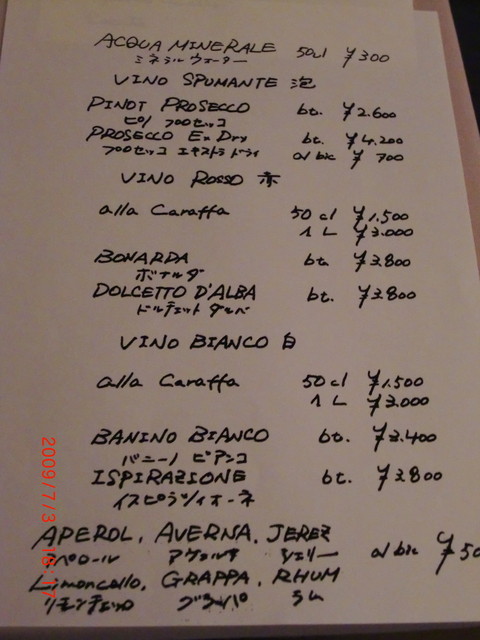 ACQUA MINERALE 50cl ¥300
ミネラル ウォーター
VINO SPUMANTE 泡
PINOT PROSECCO bt. ¥2.600
ピノ プロセッコ
PROSECCO Ex Dry bt. ¥4.200
プロセッコ エキストラ ドライ al bic ¥700
VINO ROSSO 赤
alla Caraffa 50 cl ¥1.500
1 L ¥3.000
BONARDA bt. ¥3.800
ボナルダ
DOLCETTO D'ALBA bt. ¥3.800
ドルチェット ダルバ
VINO BIANCO 白
alla Caraffa 50 cl ¥1.500
1 L ¥3.000
BANINO BIANCO bt. ¥3.400
バニーノ ビアンコ
ISPIRAZIONE bt. ¥3.800
イスピラツィオーネ
APEROL, AVERNA, JEREZ
アペロール アヴェルナ シェリー al bic ¥50
Limoncello, GRAPPA, RHUM
リモンチェッロ グラッパ ラム
2009/7/3 16:17